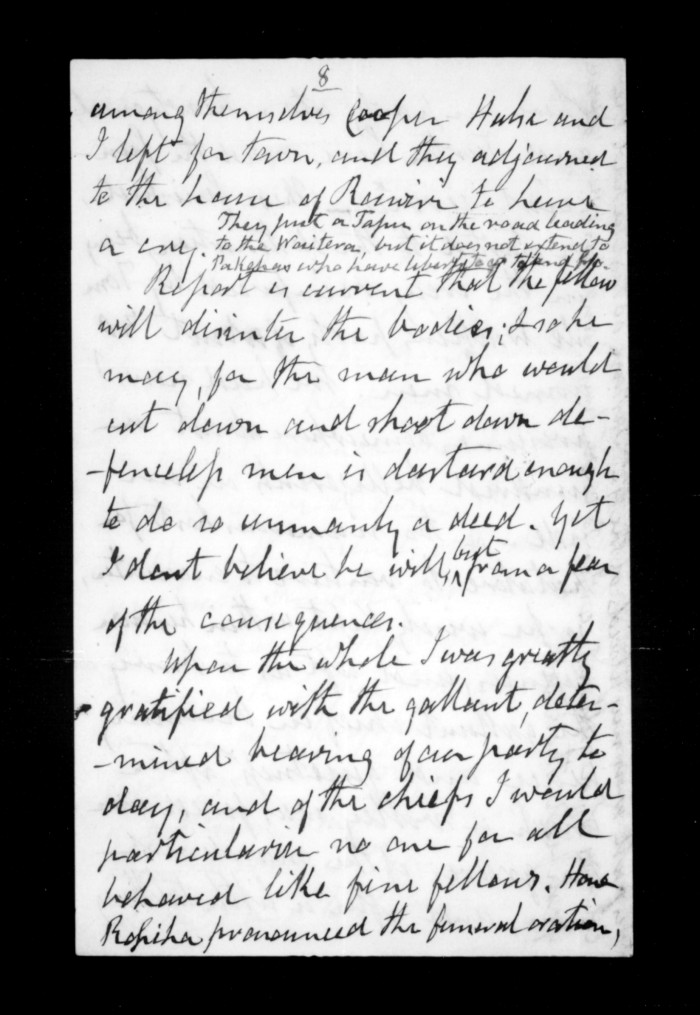 8
among themselves Cooper Halse and
I left for town, and they adjourned
to the house of Rawiri to have
a cry. They put a Tapu on the road leading
to the Waitera, but it does not extend to
Pakehas who have liberty to
Report is current that the fellow
will disinter the bodies; & so he
may, for the man who would
cut down and shoot down de-
-fenceless men is dastard enough
to do so unmanly a deed. Yet
I dont believe he will, but from a fear
of the consequences.
Upon the whole I was greatly
gratified with the gallant, deter-
-mined bearing of our party to
day, and of the chiefs I would
particularise no one for all
behaved like fine fellows. Hone
Ropiha pronounced the funeral oration,